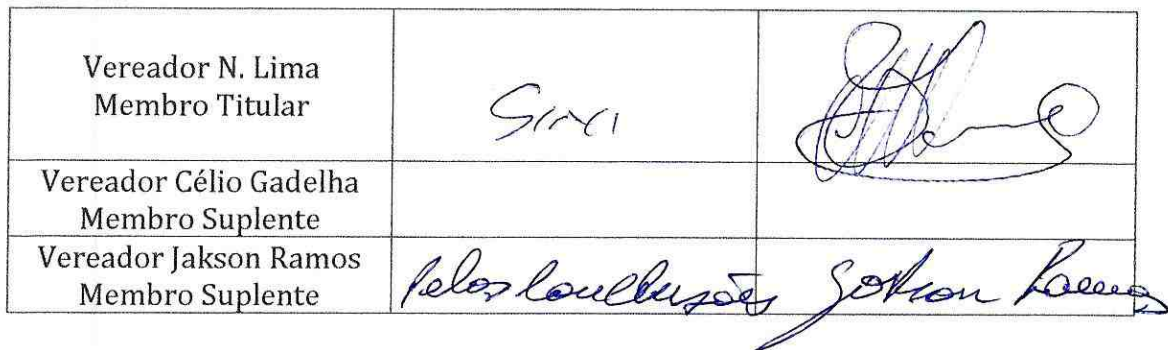 Vereador N. Lima
Membro Titular
Sim
Vereador Célio Gadelha
Membro Suplente
Vereador Jakson Ramos
Membro Suplente
Pelas Conclusões Jakson Ramos